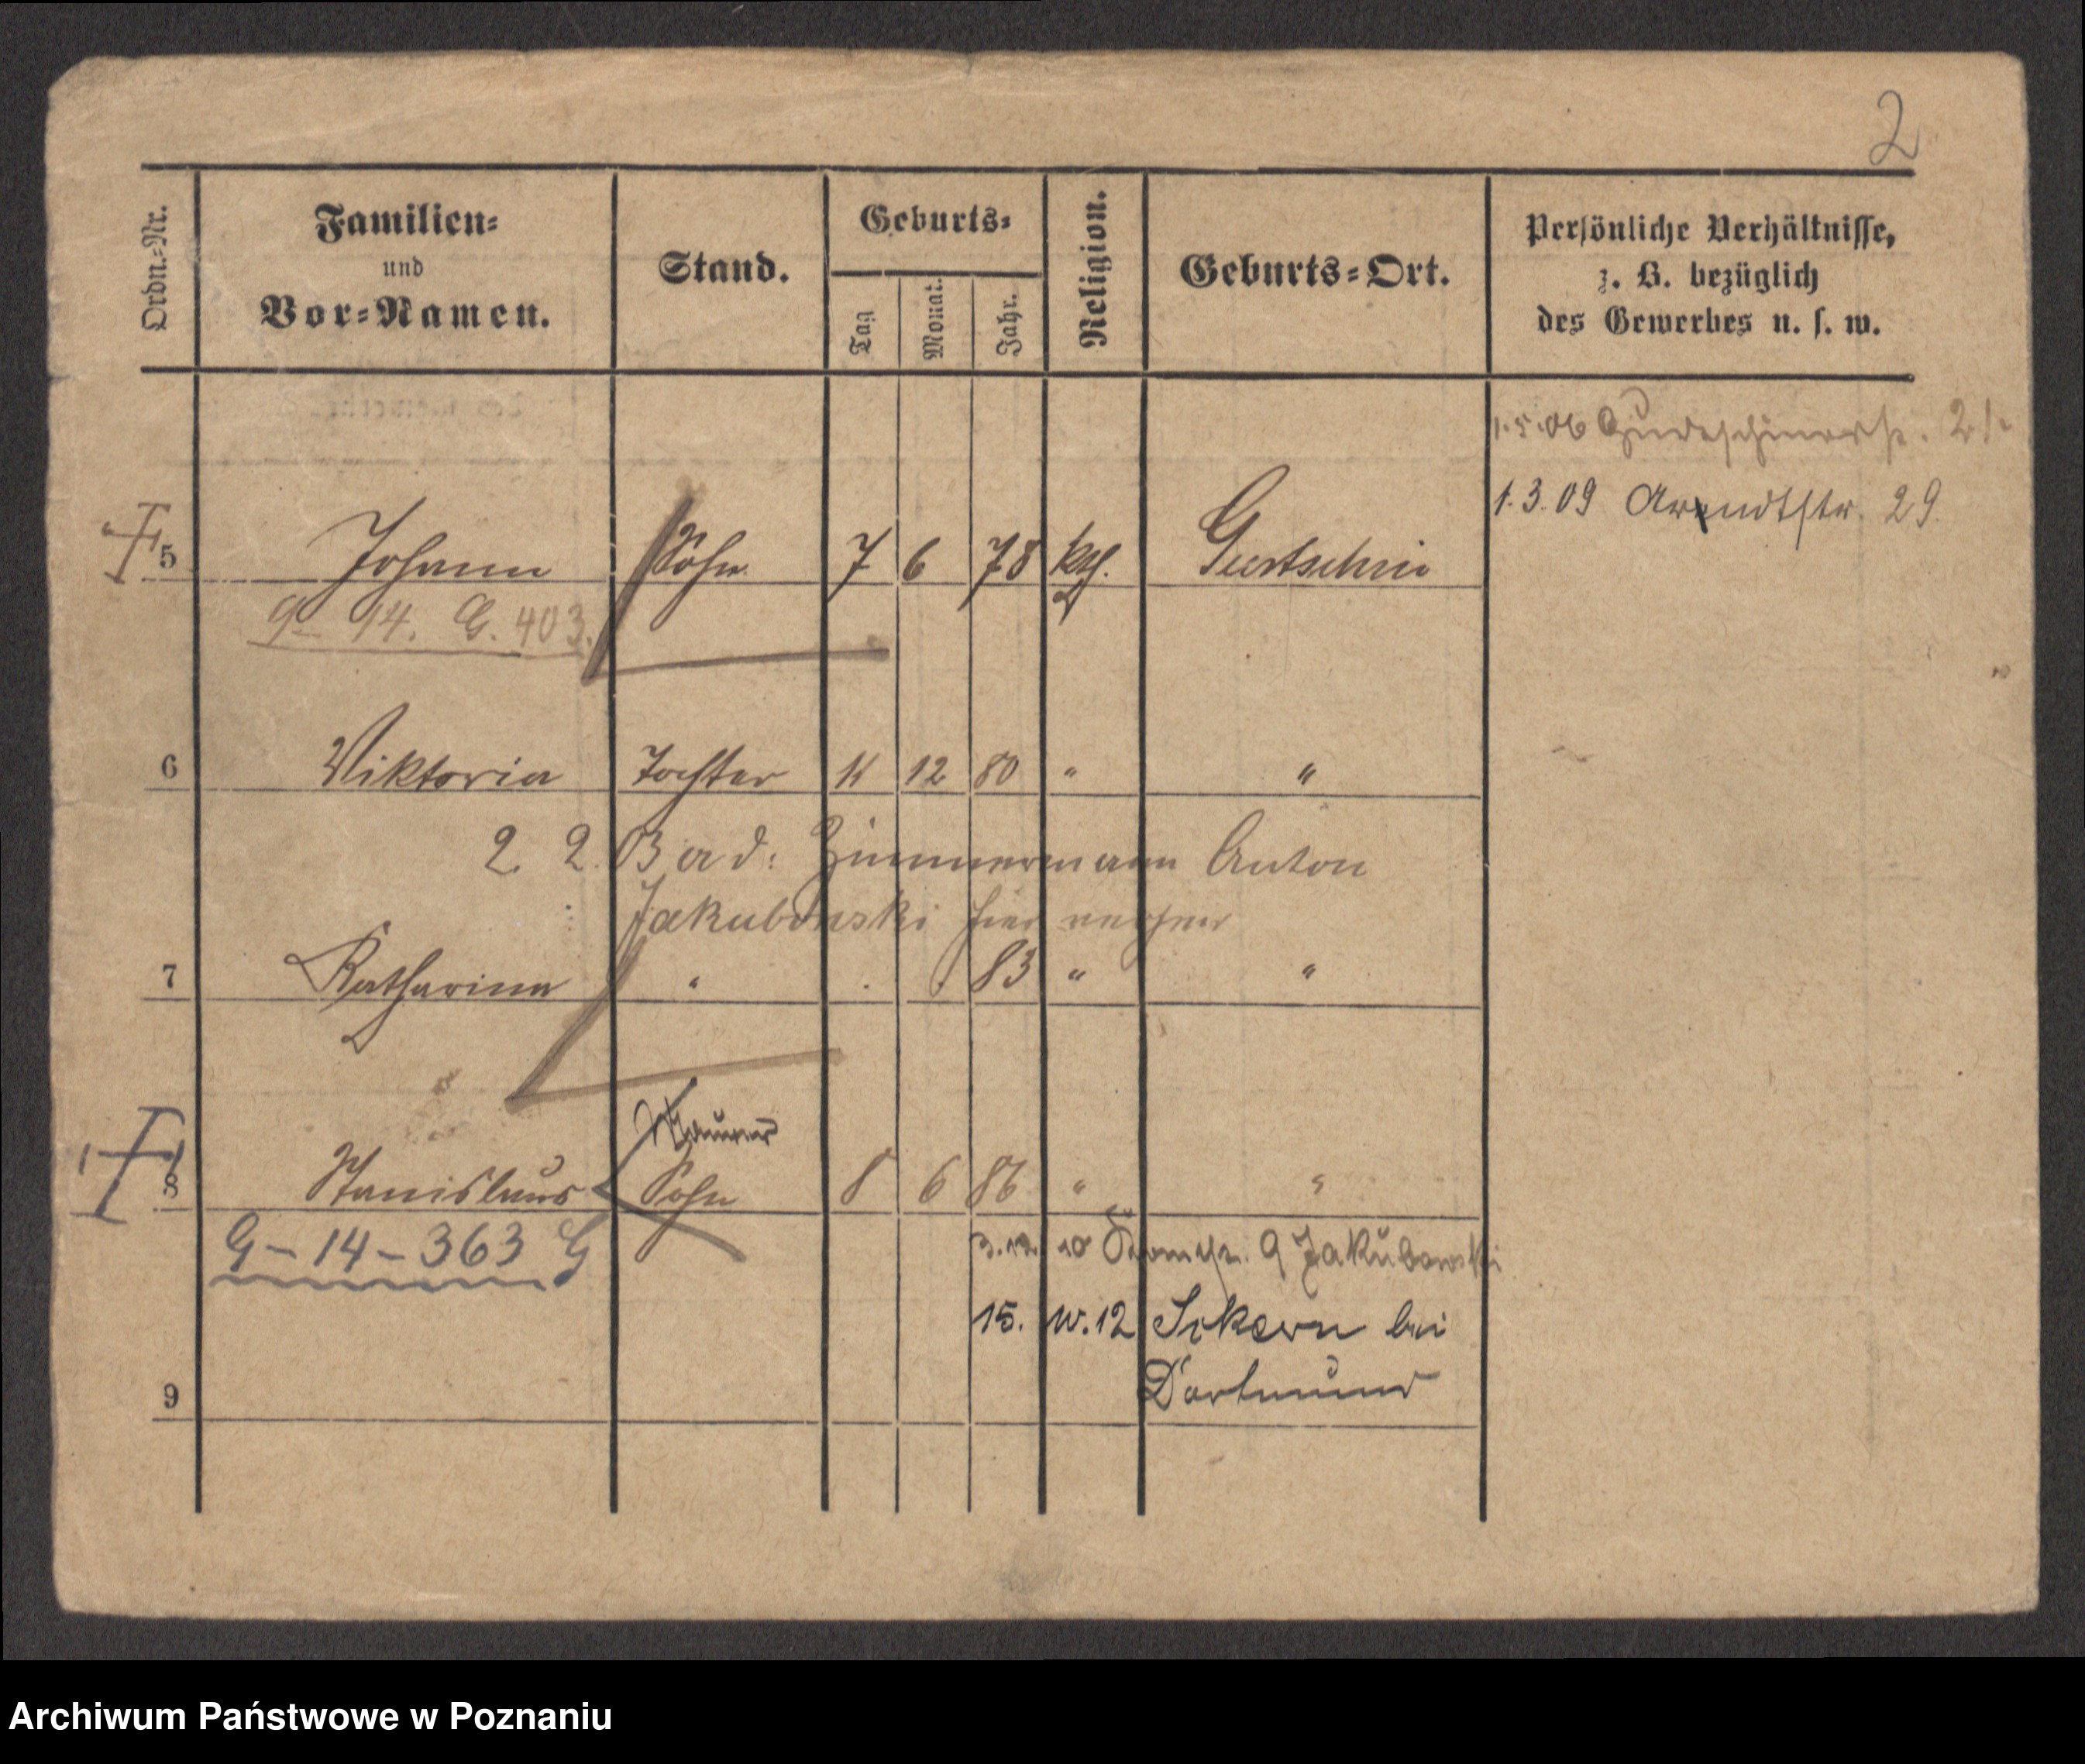 2
Ordn.-Nr.
Familien-
und
Vor-Namen.
Stand.
Geburts-
Tag
Monat.
Jahr.
Religion.
Geburts-Ort.
Persönliche Verhältnisse,
z. B. bezüglich
des Gewerbes u. s. w.
1.5.06 21
1.3.09 Arndtstr. 29.
5 Johann Sohn 7 6 78 kth. Gurtschin
G- 14. G. 403.
6 Viktoria Tochter 11 12 80 " "
2. 2. 03 a. d. Zimmermann Anton
Jakubowski hier
7 Katharina " . . 83 " "
Maurer
8 Stanislaus Sohn 8 6 86 " "
G-14-363 G
3.12. 10 9 Jakubowski
15. 12 bei
Dortmund
9
Archiwum Państwowe w Poznaniu